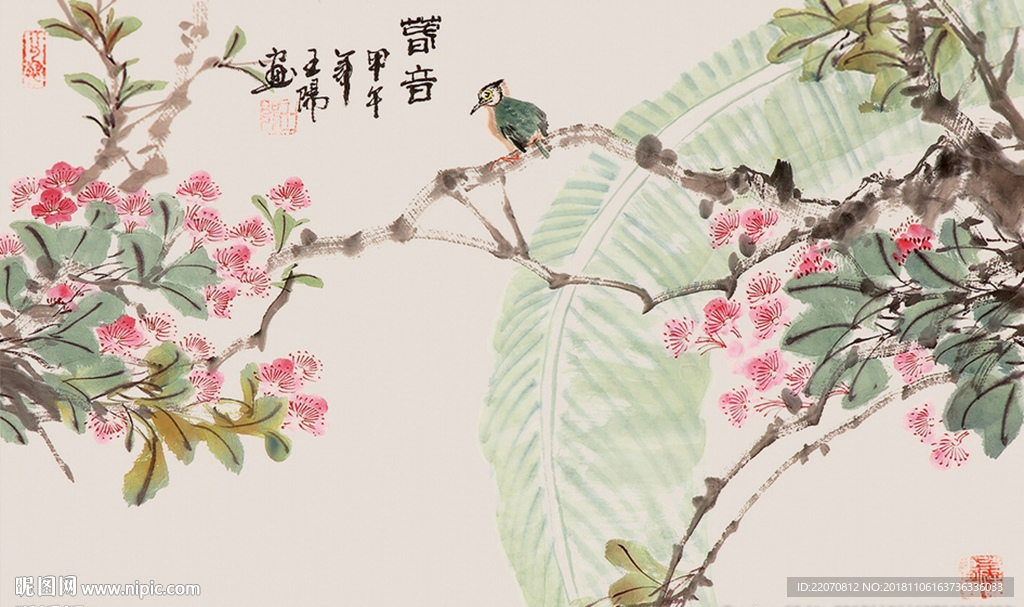 春音
甲午
年
王陽
畫
昵图网 www.nipic.com
ID:22070812 NO:20181106163736336033